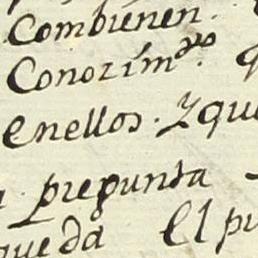 Combienen.
Conozim.to
enellos. Y que
pregunta
queda El pu